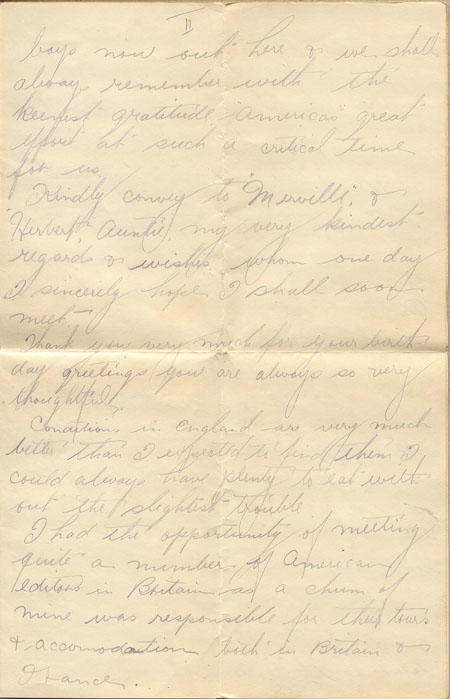 II
boys now out here & we shall
always remember with the
keenest gratitude America's great
effort at such a critical time
for us.
Kindly convey to "Merville", &
"Herbert", Auntie my very kindest
regards & wishes whom one day
I sincerely hope I shall soon
meet.
Thank you very much for your birth
day greetings you are always so very
thoughtful.
Conditions in England are very much
better than I expected to find them I
could always have plenty to eat with
out the slightest trouble
I had the opportunity of meeting
quite a number of American
editors in Britain as a chum of
mine was responsible for their tours
& accomodaution both in Britain &
France.